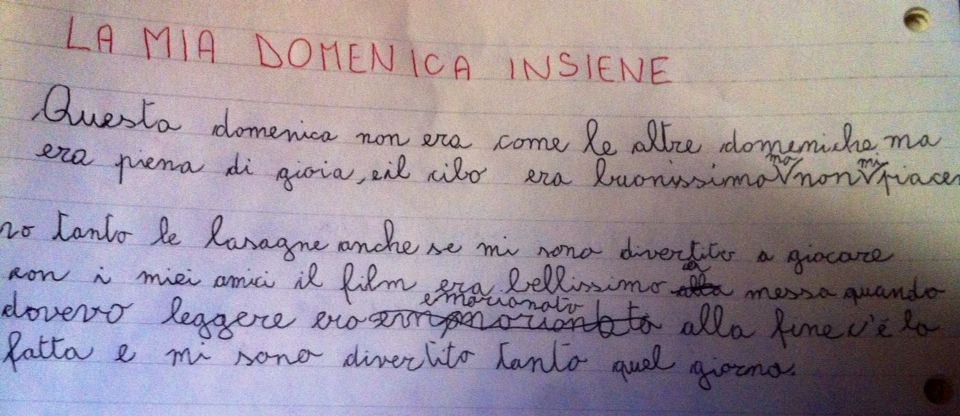 LA MIA DOMENICA INSIENE
Questa domenica non era come le altre domeniche ma
era piena di gioia, e il cibo era buonissimo ma non mi piacev
no tanto le lasagne anche se mi sono divertito a giocare
con i miei amici il film era bellissimo a messa quando
dovevo leggere ero emozionato alla fine c'è lo
fatta e mi sono divertito tanto quel giorno.